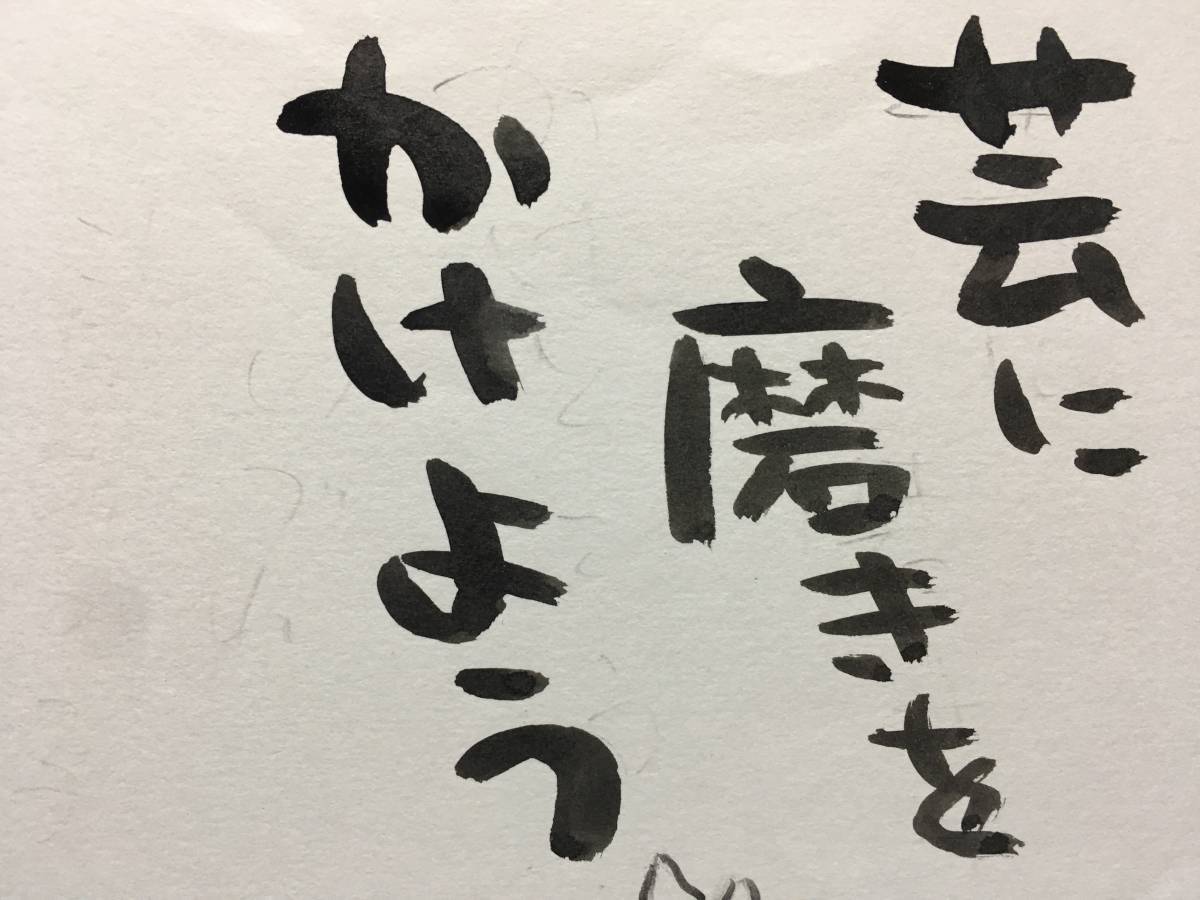 芸に
磨きを
かけよう